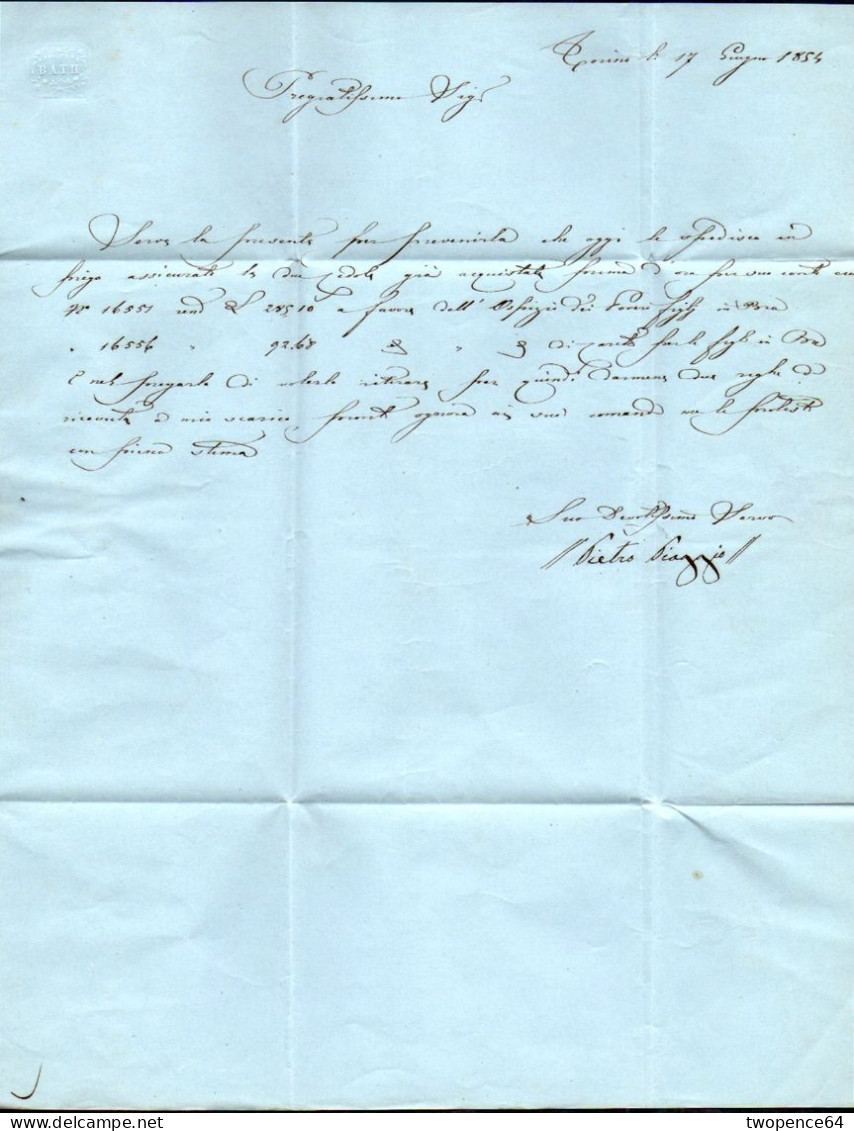 BATH
Torino li 17 Giugno 1854
Pregiatissimo Sigr
Serve la presente per prevenirla che oggi le spedisco in
piego assicurato le due cedole già acquistate prima d'ora per suo conto
No 16551 rend L 285 10 a favore dell' Ospizio dei Poveri figli in Bra
" 16556 " 92.68 " di carità per le figlie in Bra
E nel pregarla di volerle ritirare per quindi darmene due righe di
ricevuta a mio scarico, pronto ognora ai suoi comandi me le protesto
con piena stima
Suo Devotissimo Servo
Pietro Piaggio
twopence64